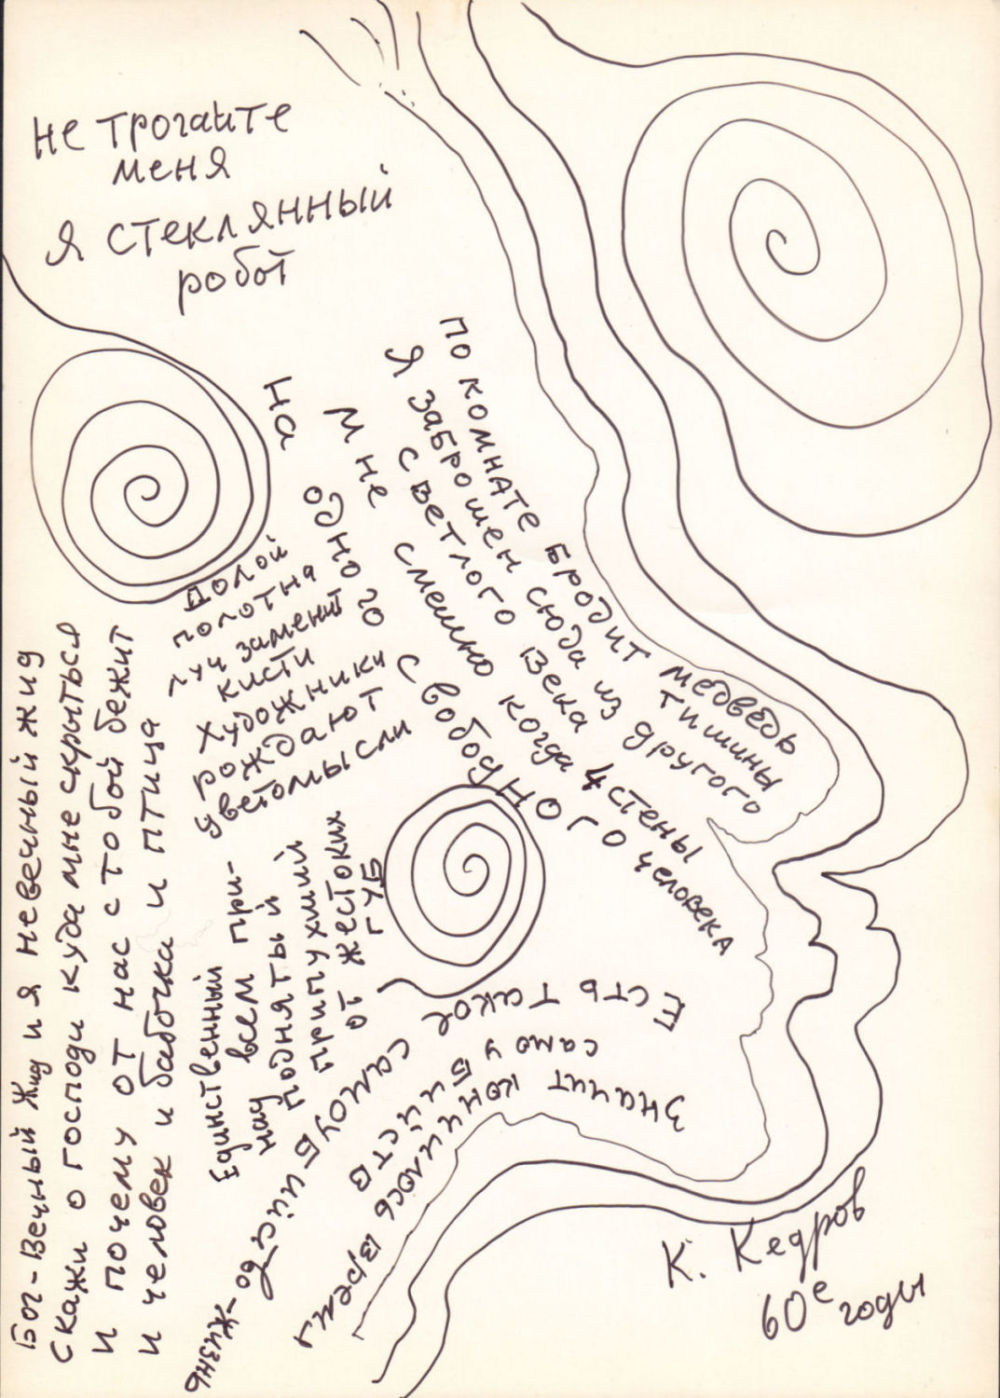 не трогайте
меня
Я стеклянный
робот
По комнате бродит медведь
тишины
Я заброшен сюда из другого
светлого века
Мне смешно когда 4 стены
На одного свободного человека
Долой
полотна
луч заменит
кисти
Художники
рождают
цветомысли
Бог-Вечный Жид и я невечный жид
Скажи о господи куда мне скрыться
И почему от нас с тобой бежит
и человек и бабочка и птица
Единственный
всем при-
нау
поднятый
припухший
от жестоких
губ
Есть такое самоубийство-жизнь
Значит кончилось время
самоубийств
К. Кедров
60е годы